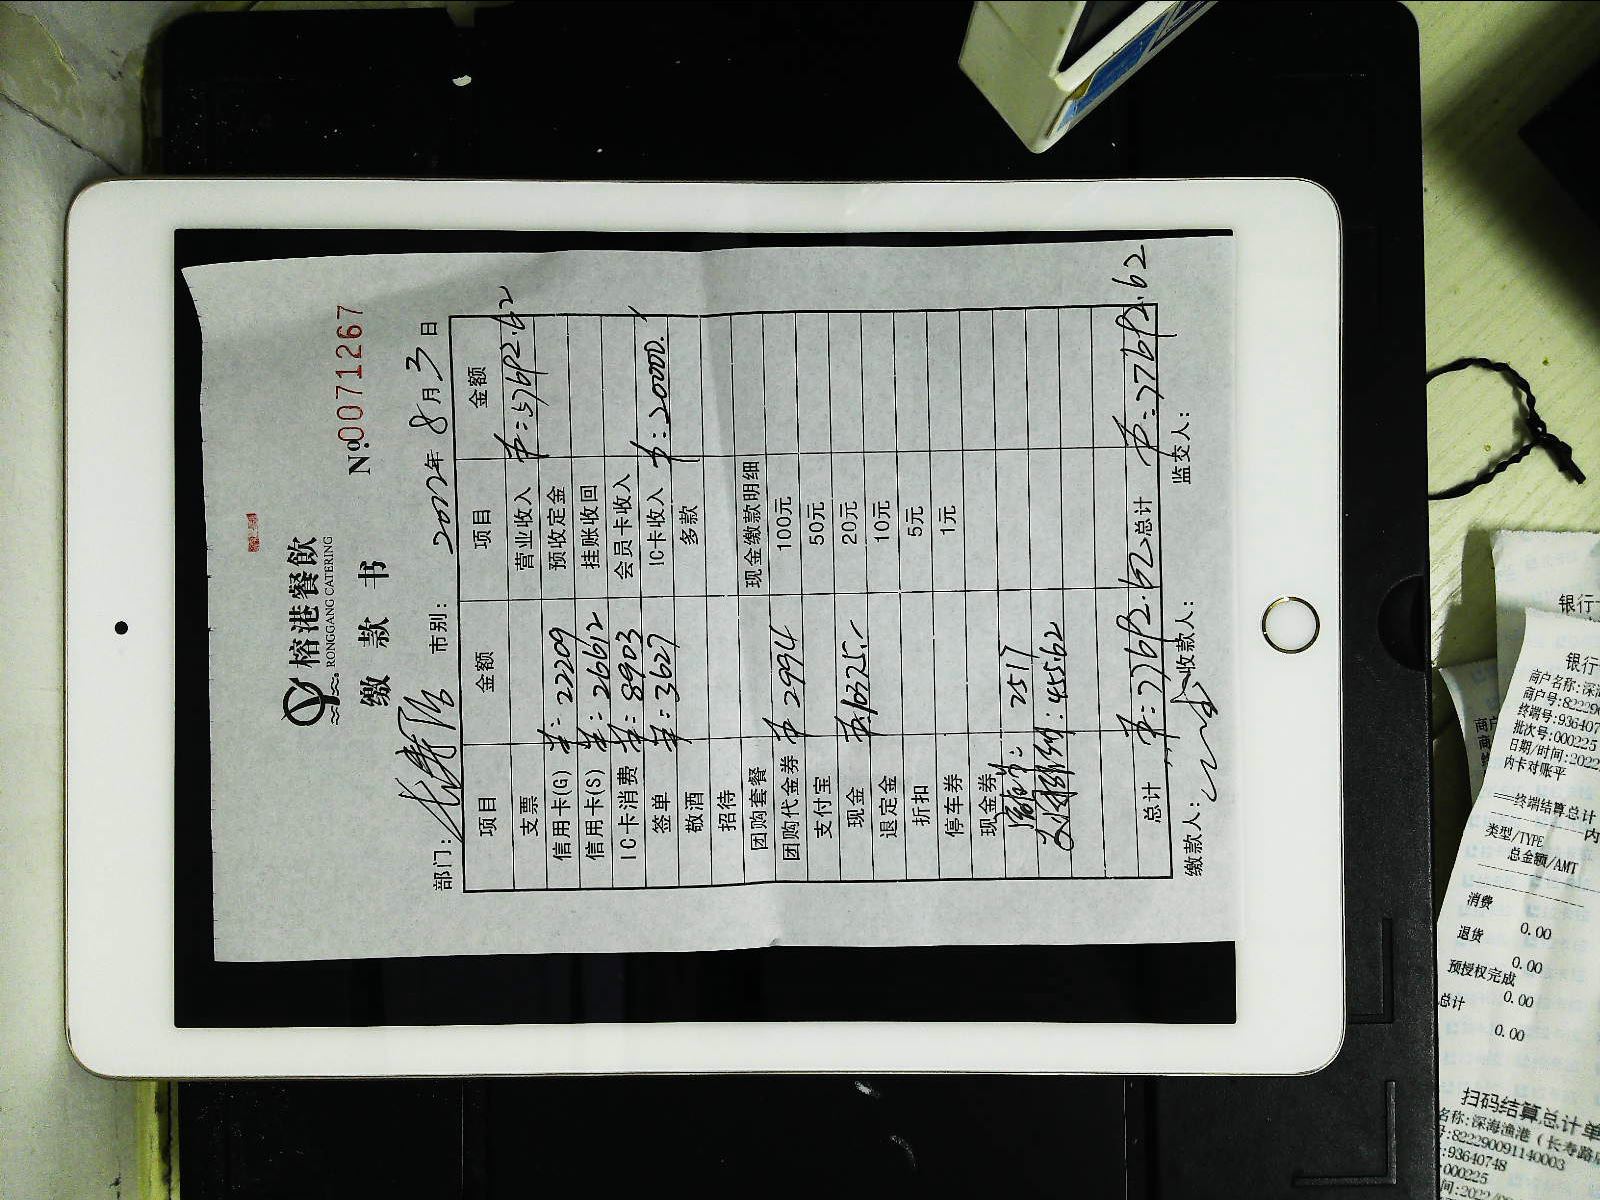 榕港餐飲
RONGGANG CATERING
缴 款 书
No.0071267
部门：长寿路 市别： 2022年 8月 3日
项目 金额 项目 金额
支票 营业收入 ¥:57682.62
信用卡(G) ¥: 22209 预收定金
信用卡(S) ¥: 26612 挂账收回
IC卡消费 ¥: 8903 会员卡收入
签单 ¥: 3627 IC卡收入 ¥:20000.
敬酒 多款
招待
团购套餐 现金缴款明细
团购代金券 ¥ 2994 100元
支付宝 50元
现金 ¥:10325. 20元
退定金 10元
折扣 5元
停车券 1元
现金券
: 2517
: 455.62
总计 ¥:77682.62 总计 ¥:77682.62
缴款人： 收款人： 监交人：
银行
银行
商户名称:深海
商户号:82229
终端号:936407
批次号:000225
日期/时间:2022
内卡对账平
===终端结算总计
内
类型/TYPE
总金额/AMT
消费
0.00
退货
0.00
预授权完成
0.00
总计
0.00
扫码结算总计单
名称:深海渔港（长寿路店
:822290091140003
:93640748
:000225
间:2022/0